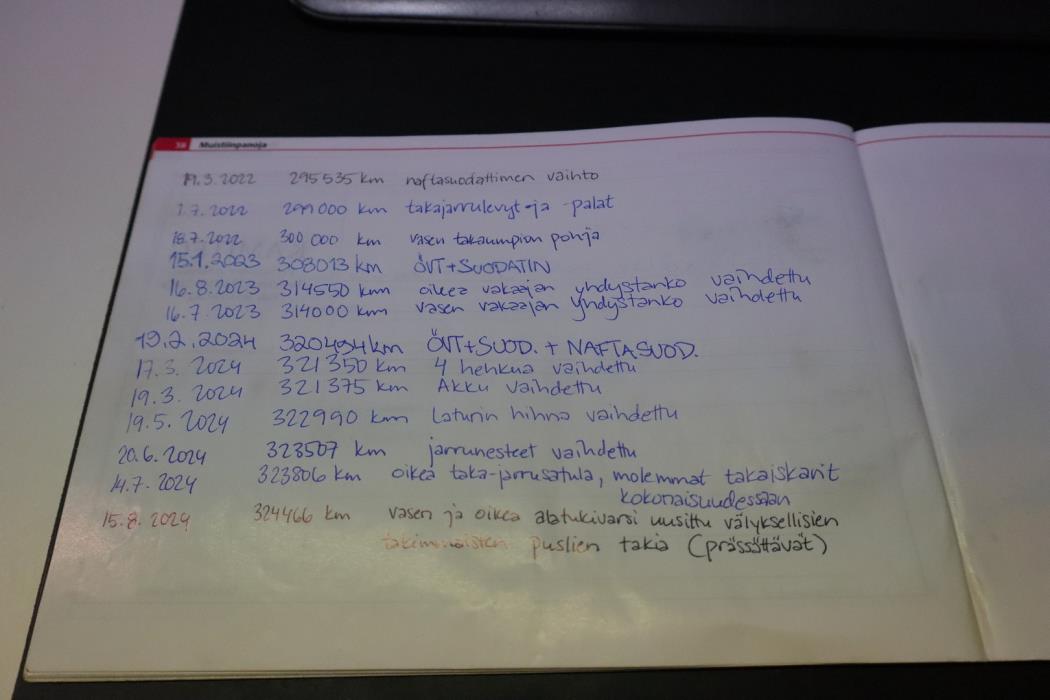 38 Muistiinpanoja
19.3.2022 295535 km naftasuodattimen vaihto
1.7.2022 299000 km takajarrulevyt-ja -palat
18.7.2022 300 000 km vasen takaumpion pohja
15.1.2023 308013 km ÖVT+SUODATIN
16.8.2023 314550 km oikea vakaajan yhdystanko vaihdettu
16.7.2023 314000 km vasen vakaajan yhdystanko vaihdettu
19.2.2024 320494 km ÖVT+SUOD. + NAFTASUOD.
17.3.2024 321350 km 4 hehkua vaihdettu
19.3.2024 321375 km Akku vaihdettu
19.5.2024 322990 km Laturin hihna vaihdettu
20.6.2024 323507 km jarrunesteet vaihdettu
14.7.2024 323806 km oikea taka-jarrusatula, molemmat takaiskarit
kokonaisuudessaan
15.8.2024 324466 km vasen ja oikea alatukivarsi uusittu välyksellisien
takimmaisten puslien takia (prässättävät)